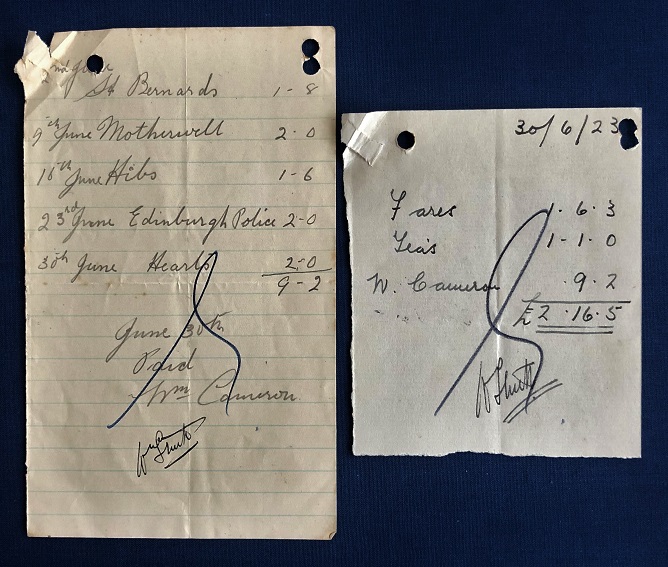 2nd June
St Bernards 1-8
9th June Motherwell 2-0
16th June Hibs 1-6
23rd June Edinburgh Police 2-0
30th June Hearts 2-0
9-2
June 30th
Paid
Wm Cameron
30/6/23
Fares 1.6.3
Teas 1-1.0
W. Cameron .9.2
£2.16.5